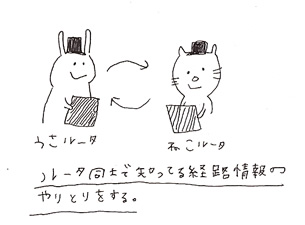 うさルータ
ねこルータ
ルータ同士で知ってる経路情報の
やりとりをする。